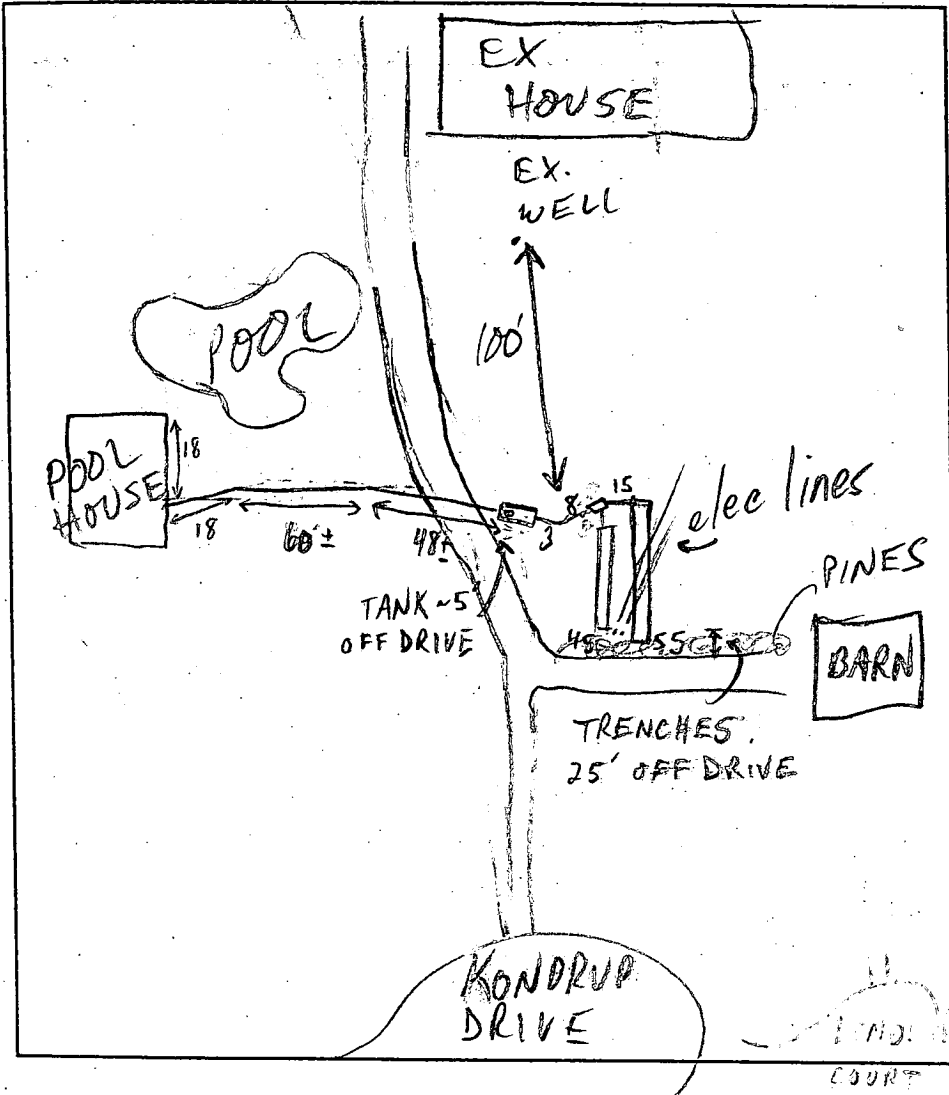 EX
HOUSE
EX.
WELL
POOL
100'
POOL
HOUSE
18
18
60'±
48±
3
8
15
elec lines
TANK ~5
OFF DRIVE
PINES
45
55
BARN
TRENCHES.
25' OFF DRIVE
KONDRUP
DRIVE
COURT